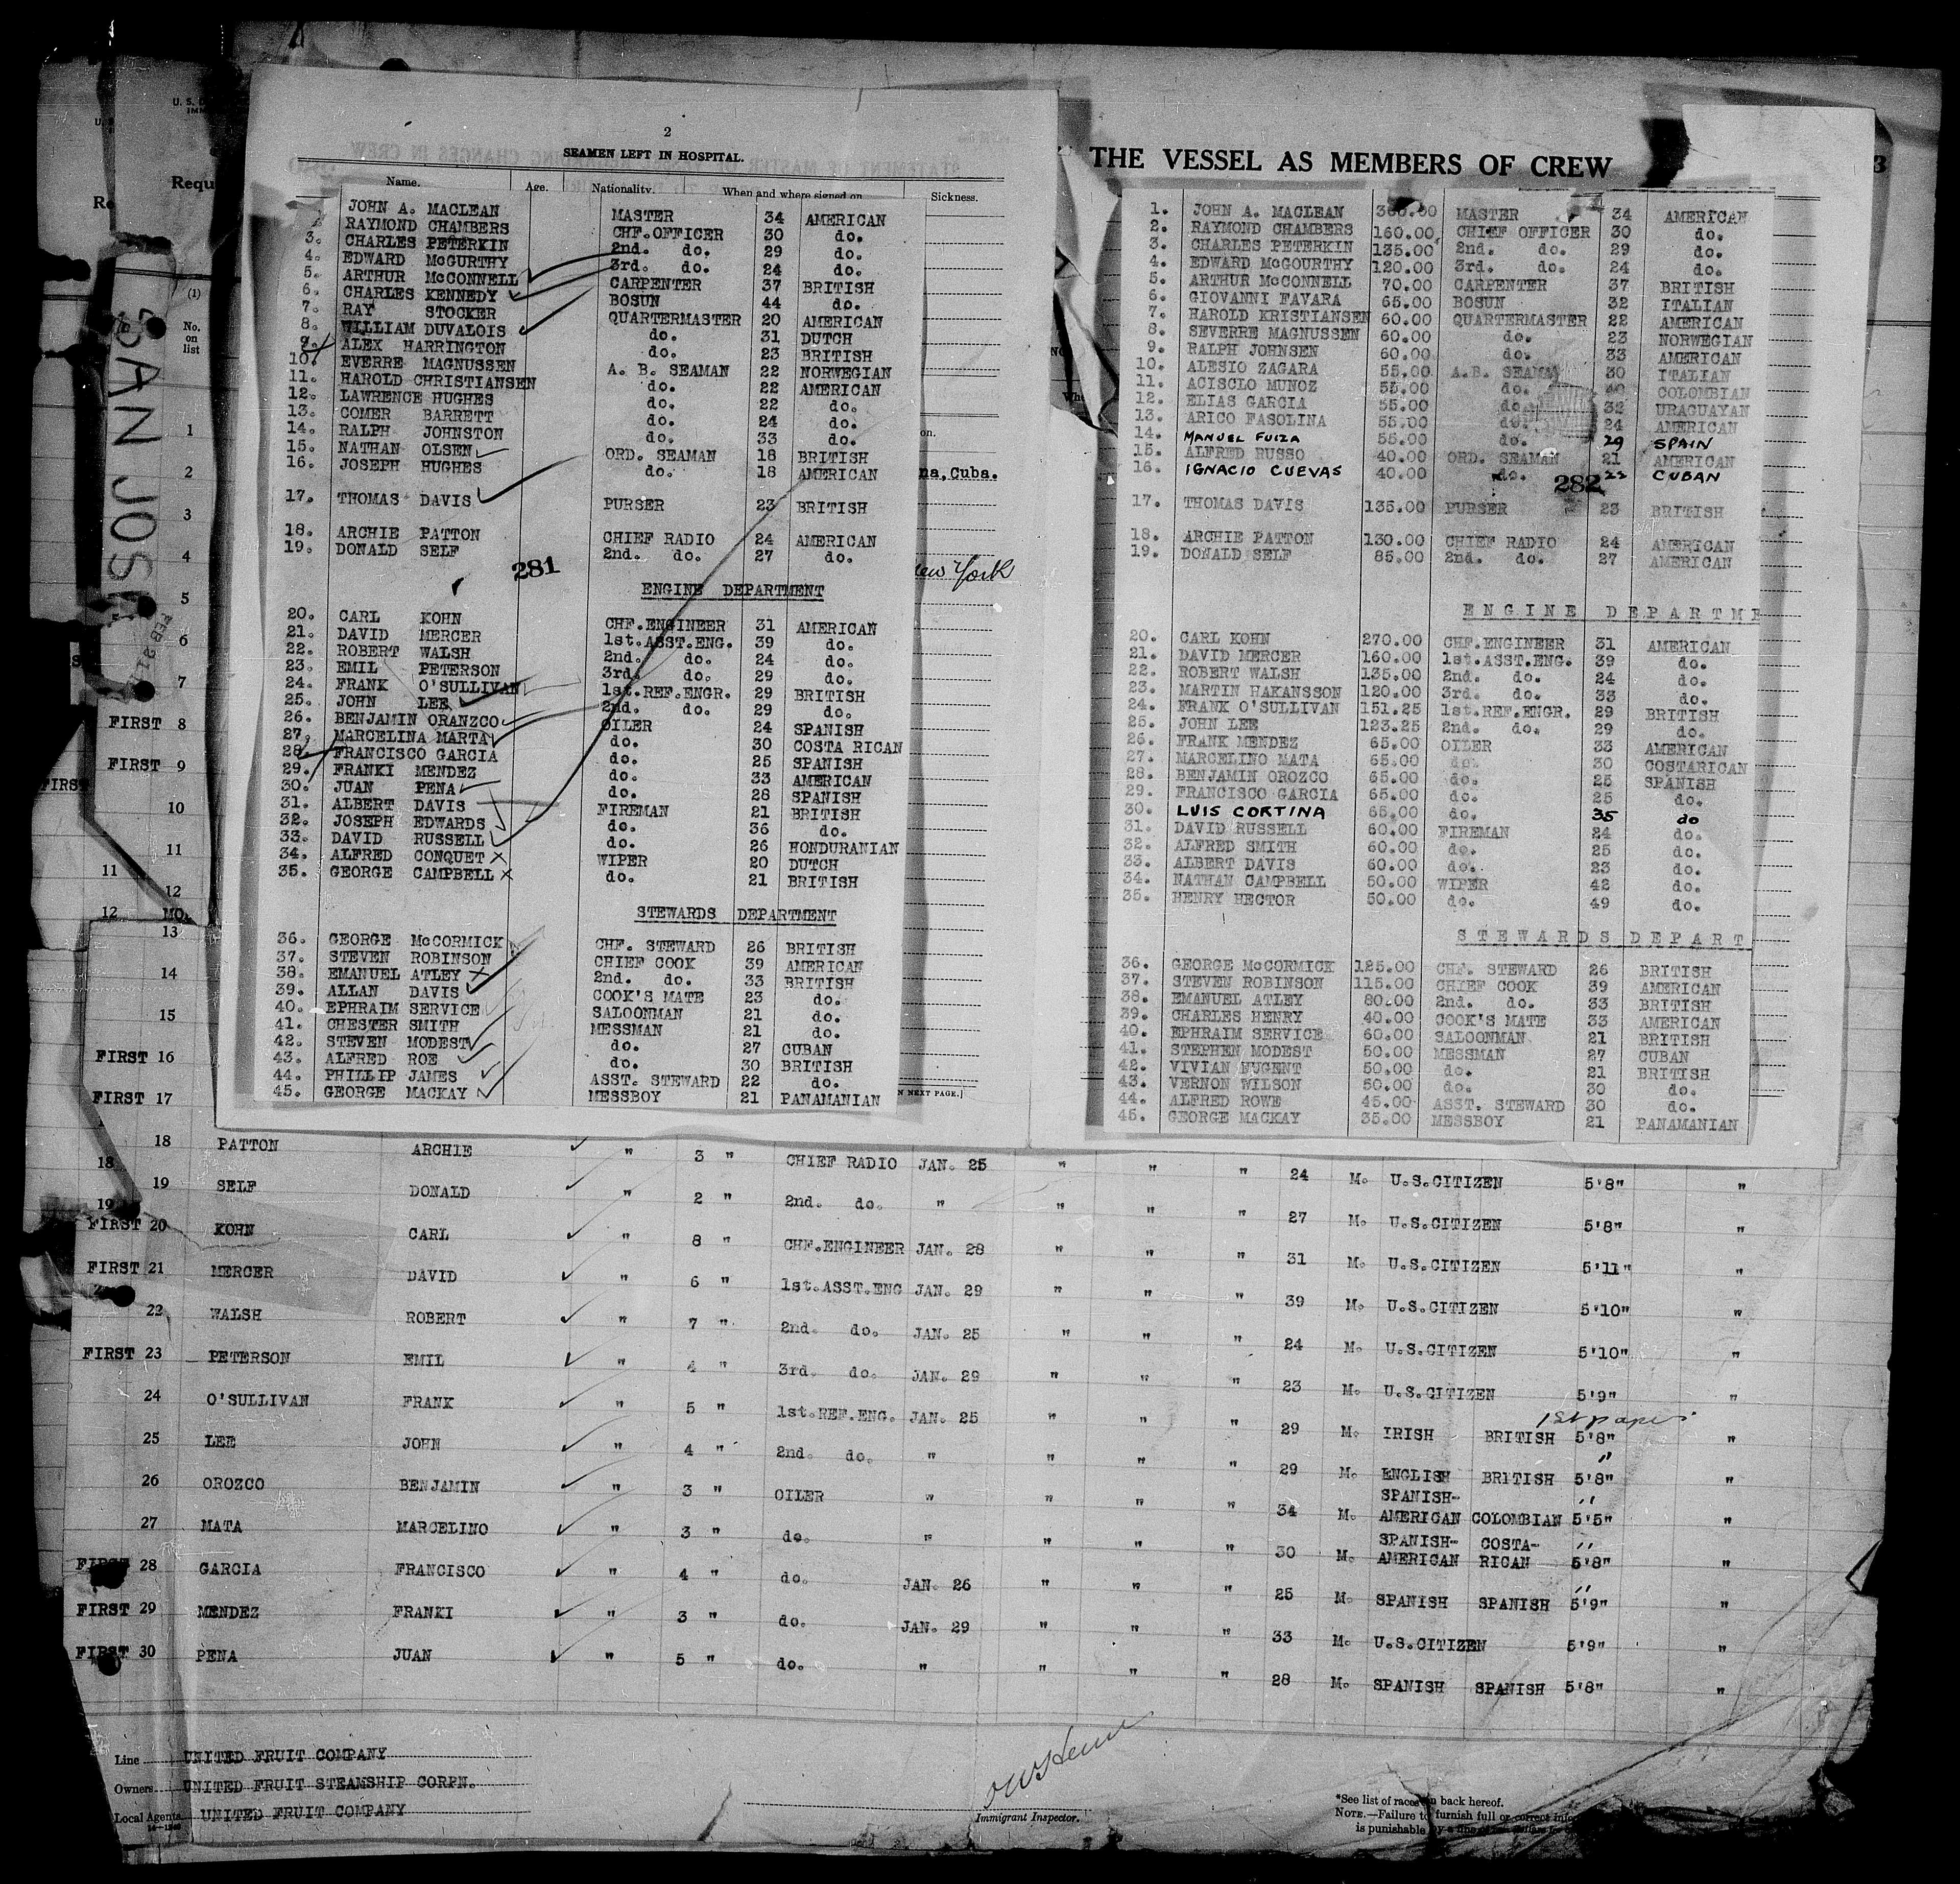 2
SEAMEN LEFT IN HOSPITAL.
Name. Age. Nationality. When and where signed on Sickness.
JOHN A. MACLEAN MASTER 34 AMERICAN
RAYMOND CHAMBERS CHF.OFFICER 30 do.
3. CHARLES PETERKIN 2nd. do. 29 do.
4. EDWARD McGURTHY 3rd. do. 24 do.
5. ARTHUR McCONNELL CARPENTER 37 BRITISH
6. CHARLES KENNEDY BOSUN 44 do.
7. RAY STOCKER QUARTERMASTER 20 AMERICAN
8. WILLIAM DUVALOIS do. 31 DUTCH
9. ALEX HARRINGTON do. 23 BRITISH
10. EVERRE MAGNUSSEN A. B. SEAMAN 22 NORWEGIAN
11. HAROLD CHRISTIANSEN do. 22 AMERICAN
12. LAWRENCE HUGHES do. 22 do.
13. COMER BARRETT do. 24 do.
14. RALPH JOHNSTON do. 33 do.
15. NATHAN OLSEN ORD. SEAMAN 18 BRITISH
16. JOSEPH HUGHES do. 18 AMERICAN
na, Cuba.
17. THOMAS DAVIS PURSER 23 BRITISH
18. ARCHIE PATTON CHIEF RADIO 24 AMERICAN
19. DONALD SELF 2nd. do. 27 do.
281
ew York
ENGINE DEPARTMENT
20. CARL KOHN CHF.ENGINEER 31 AMERICAN
21. DAVID MERCER 1st.ASST.ENG. 39 do.
22. ROBERT WALSH 2nd. do. 24 do.
23. EMIL PETERSON 3rd. do. 29 do.
24. FRANK O'SULLIVAN 1st.REF.ENGR. 29 BRITISH
25. JOHN LEE 2nd. do. 29 do.
26. BENJAMIN ORANZCO OILER 24 SPANISH
27. MARCELINA MARTA do. 30 COSTA RICAN
28. FRANCISCO GARCIA do. 25 SPANISH
29. FRANKI MENDEZ do. 33 AMERICAN
30. JUAN PENA do. 28 SPANISH
31. ALBERT DAVIS FIREMAN 21 BRITISH
32. JOSEPH EDWARDS do. 36 do.
33. DAVID RUSSELL do. 26 HONDURANIAN
34. ALFRED CONQUET WIPER 20 DUTCH
35. GEORGE CAMPBELL do. 21 BRITISH
STEWARDS DEPARTMENT
36. GEORGE McCORMICK CHF. STEWARD 26 BRITISH
37. STEVEN ROBINSON CHIEF COOK 39 AMERICAN
38. EMANUEL ATLEY 2nd. do. 33 BRITISH
39. ALLAN DAVIS COOK'S MATE 23 do.
40. EPHRAIM SERVICE SALOONMAN 21 do.
41. CHESTER SMITH MESSMAN 21 do.
42. STEVEN MODEST do. 27 CUBAN
43. ALFRED ROE do. 30 BRITISH
44. PHILLIP JAMES ASST. STEWARD 22 do.
45. GEORGE MACKAY MESSBOY 21 PANAMANIAN
N NEXT PAGE.]
THE VESSEL AS MEMBERS OF CREW
3
1. JOHN A. MACLEAN MASTER 34 AMERICAN
2. RAYMOND CHAMBERS 160.00 CHIEF OFFICER 30 do.
3. CHARLES PETERKIN 135.00 2nd. do. 29 do.
4. EDWARD McGOURTHY 120.00 3rd. do. 24 do.
5. ARTHUR McCONNELL 70.00 CARPENTER 37 BRITISH
6. GIOVANNI FAVARA 65.00 BOSUN 32 ITALIAN
7. HAROLD KRISTIANSEN 60.00 QUARTERMASTER 22 AMERICAN
8. SEVERRE MAGNUSSEN 60.00 do. 23 NORWEGIAN
9. RALPH JOHNSEN 60.00 do. 33 AMERICAN
10. ALESIO ZAGARA 55.00 A.B. SEAMAN 30 ITALIAN
11. ACISCLO MUNOZ 55.00 do. 40 COLOMBIAN
12. ELIAS GARCIA 55.00 do. 32 URAGUAYAN
13. ARICO FASOLINA 55.00 do. 24 AMERICAN
14. MANUEL FUIZA 55.00 do. 29 SPAIN
15. ALFRED RUSSO 40.00 ORD. SEAMAN 21 AMERICAN
16. IGNACIO CUEVAS 40.00 do. 22 CUBAN
282
17. THOMAS DAVIS 135.00 PURSER 23 BRITISH
18. ARCHIE PATTON 130.00 CHIEF RADIO 24 AMERICAN
19. DONALD SELF 85.00 2nd. do. 27 AMERICAN
ENGINE DEPARTME
20. CARL KOHN 270.00 CHF.ENGINEER 31 AMERICAN
21. DAVID MERCER 160.00 1st.ASST.ENG. 39 do.
22. ROBERT WALSH 135.00 2nd. do. 24 do.
23. MARTIN HAKANSSON 120.00 3rd. do. 33 do.
24. FRANK O'SULLIVAN 151.25 1st.REF.ENGR. 29 BRITISH
25. JOHN LEE 123.25 2nd. do. 29 do.
26. FRANK MENDEZ 65.00 OILER 33 AMERICAN
27. MARCELINO MATA 65.00 do. 30 COSTARICAN
28. BENJAMIN OROZCO 65.00 do. 25 SPANISH
29. FRANCISCO GARCIA 65.00 do. 25 do.
30. LUIS CORTINA 65.00 do. 35 do
31. DAVID RUSSELL 60.00 FIREMAN 24 do.
32. ALFRED SMITH 60.00 do. 25 do.
33. ALBERT DAVIS 60.00 do. 23 do.
34. NATHAN CAMPBELL 50.00 WIPER 42 do.
35. HENRY HECTOR 50.00 do. 49 do.
STEWARDS DEPART
36. GEORGE McCORMICK 125.00 CHF. STEWARD 26 BRITISH
37. STEVEN ROBINSON 115.00 CHIEF COOK 39 AMERICAN
38. EMANUEL ATLEY 80.00 2nd. do. 33 BRITISH
39. CHARLES HENRY 40.00 COOK'S MATE 33 AMERICAN
40. EPHRAIM SERVICE 60.00 SALOONMAN 21 BRITISH
41. STEPHEN MODEST 50.00 MESSMAN 27 CUBAN
42. VIVIAN NUGENT 50.00 do. 21 BRITISH
43. VERNON WILSON 50.00 do. 30 do.
44. ALFRED ROWE 45.00 ASST. STEWARD 30 do.
45. GEORGE MACKAY 35.00 MESSBOY 21 PANAMANIAN
Requ
(1)
No. on list
SAN JOSE
1
2
3
4
5
6
7
FIRST 8
FIRST 9
FIRST
10
11
11
12
12
13
14
15
FIRST 16
FIRST 17
18 PATTON ARCHIE " 3 " CHIEF RADIO JAN. 25 " " " 24 M. U.S.CITIZEN 5'8" "
18
19 SELF DONALD " 2 " 2nd. do. " " " " 27 M. U.S.CITIZEN 5'8" "
19
FIRST 20 KOHN CARL " 8 " CHF.ENGINEER JAN. 28 " " " 31 M. U.S.CITIZEN 5'11" "
FIRST 21 MERCER DAVID " 6 " 1st.ASST.ENG JAN. 29 " " " 39 M. U.S.CITIZEN 5'10" "
22 WALSH ROBERT " 7 " 2nd. do. JAN. 25 " " " 24 M. U.S.CITIZEN 5'10" "
FIRST 23 PETERSON EMIL " 4 " 3rd. do. JAN. 29 " " " 23 M. U.S.CITIZEN 5'9" "
1st paper
24 O'SULLIVAN FRANK " 5 " 1st.REF.ENG. JAN. 25 " " " 29 M. IRISH BRITISH 5'8" "
25 LEE JOHN " 4 " 2nd. do. " " " " 29 M. ENGLISH BRITISH 5'8" "
26 OROZCO BENJAMIN " 3 " OILER " " " " 34 M. SPANISH-AMERICAN COLOMBIAN 5'5" "
27 MATA MARCELINO " 3 " do. " " " " 30 M. SPANISH-AMERICAN COSTA-RICAN 5'8" "
FIRST 28 GARCIA FRANCISCO " 4 " do. JAN. 26 " " " 25 M. SPANISH SPANISH 5'9" "
FIRST 29 MENDEZ FRANKI " 3 " do. JAN. 29 " " " 33 M. U.S.CITIZEN 5'9" "
FIRST 30 PENA JUAN " 5 " do. " " " " 28 M. SPANISH SPANISH 5'8" "
Line UNITED FRUIT COMPANY
Owners UNITED FRUIT STEAMSHIP CORPN.
Local Agents UNITED FRUIT COMPANY
Immigrant Inspector.
*See list of races on back hereof.
NOTE.—Failure to furnish full or correct
is punishable by a fine of